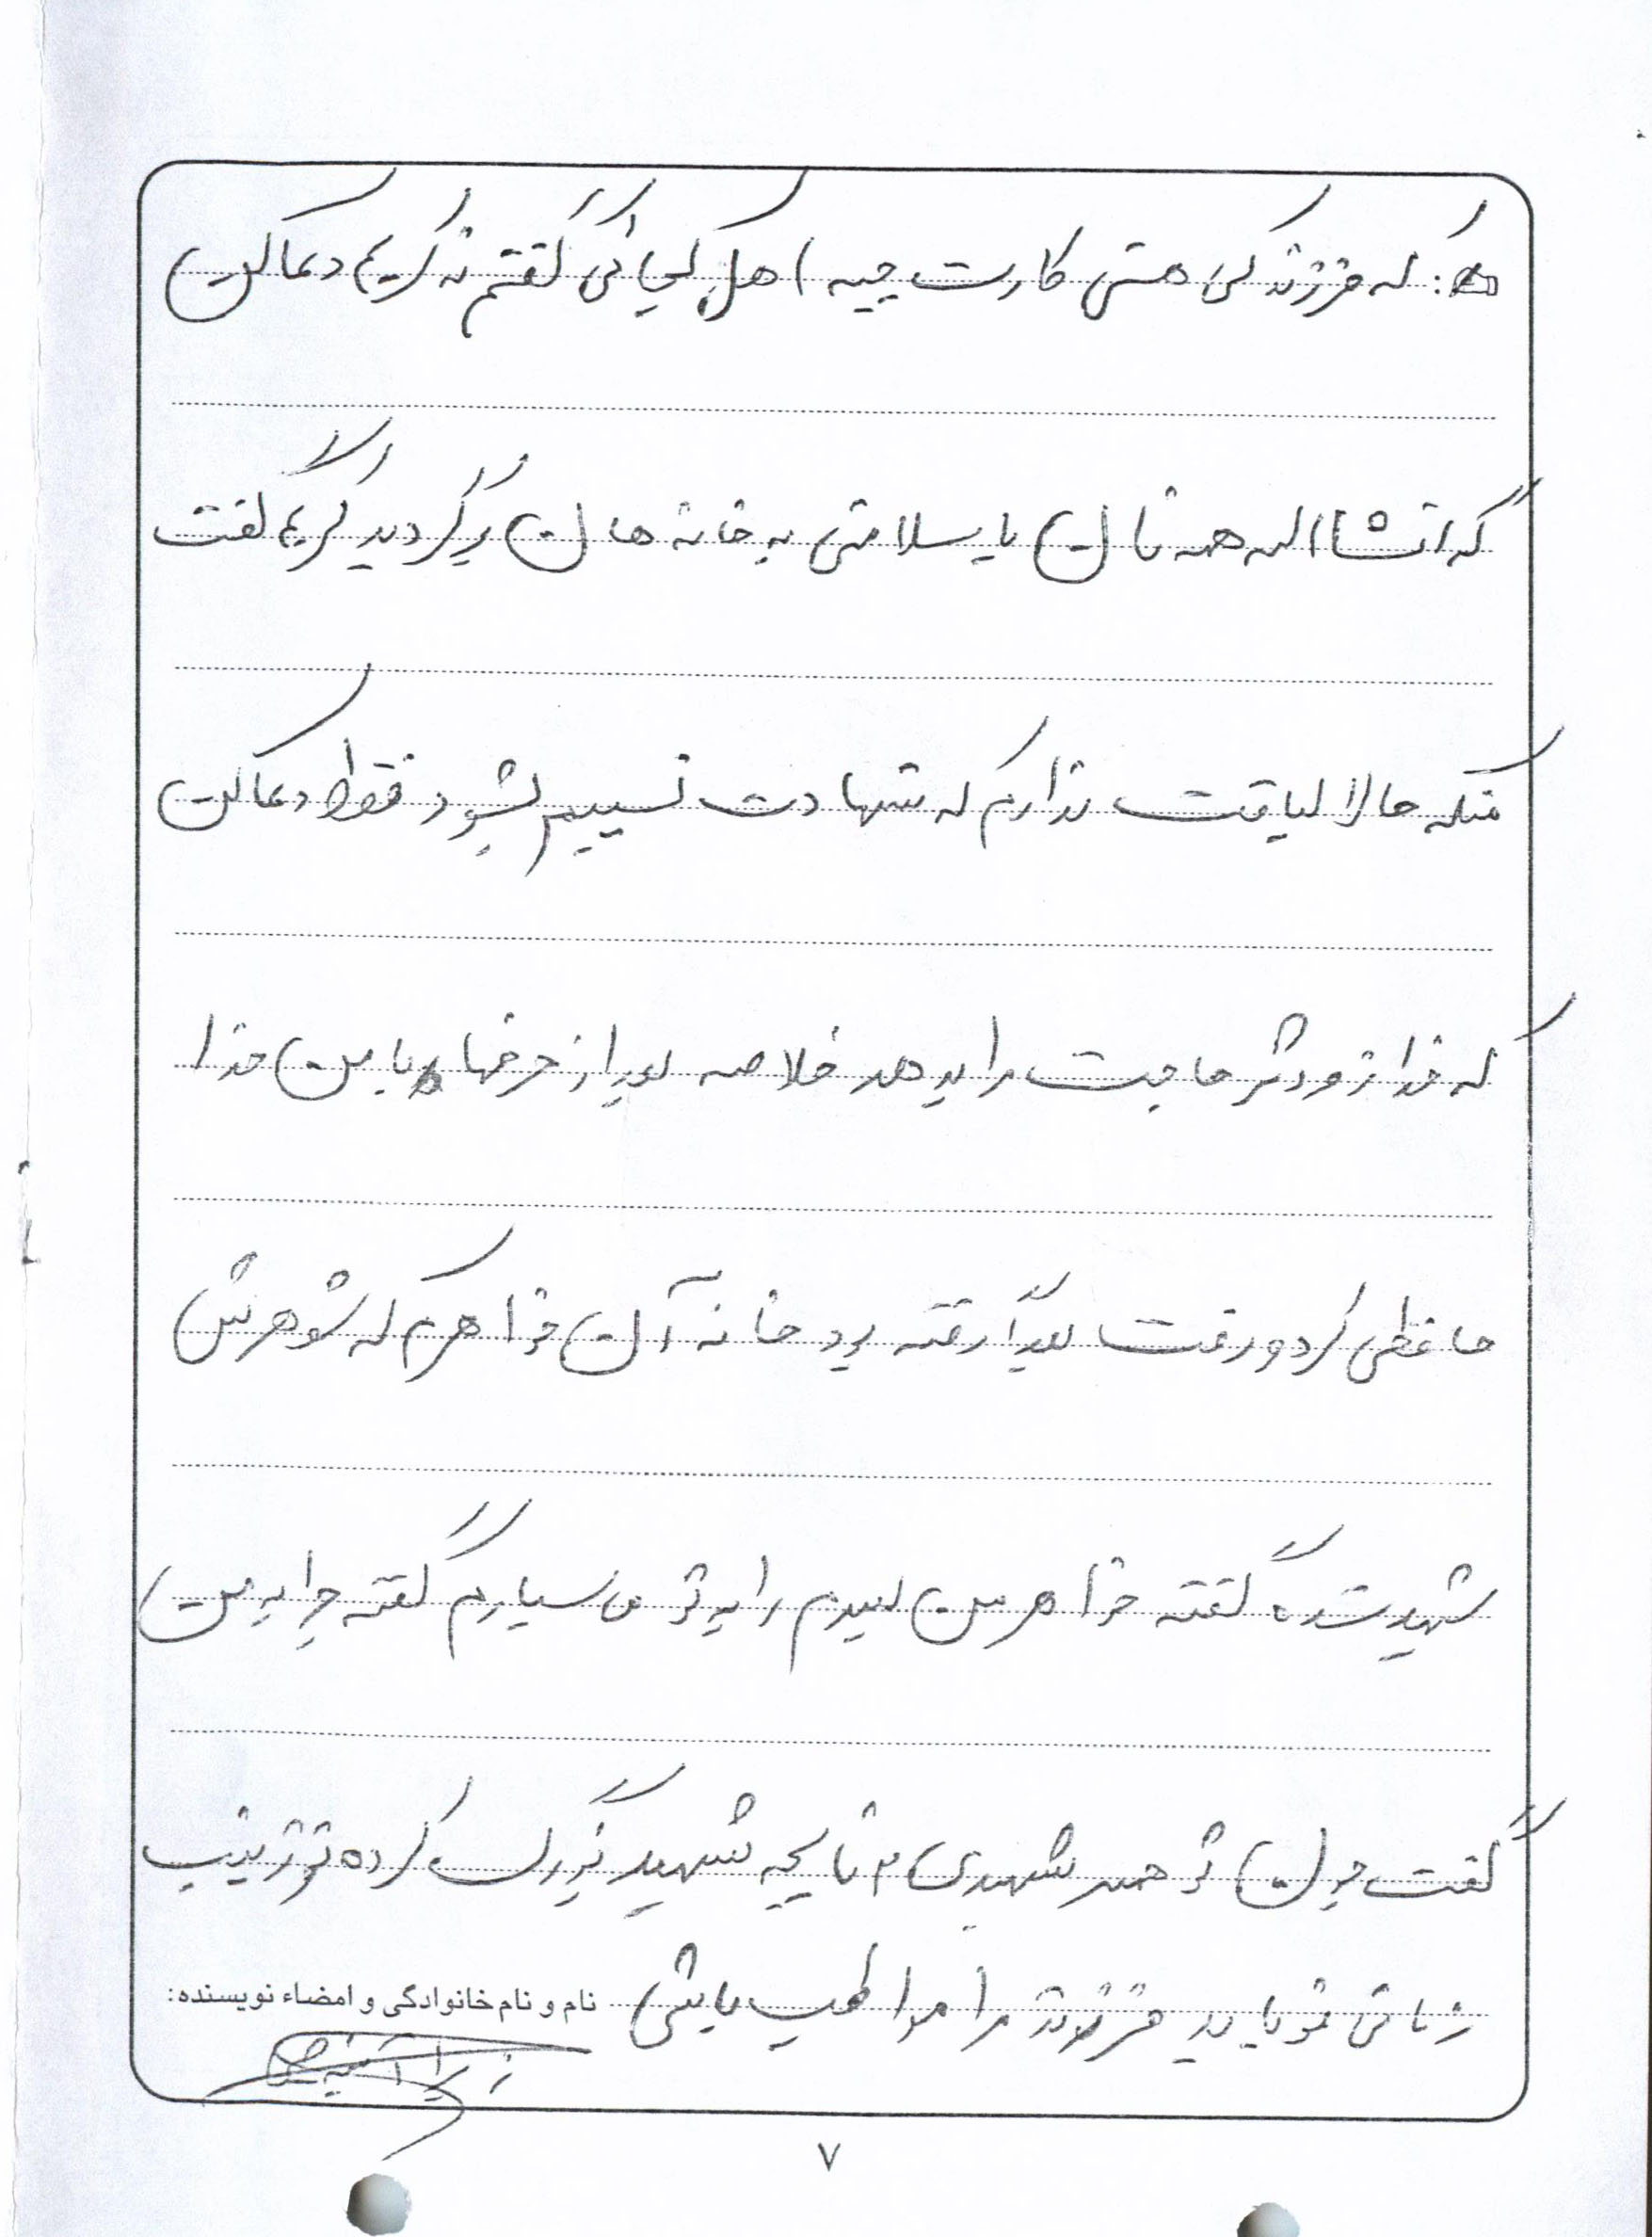 که فرزند کی هستی کارت چیه اهل کجائی گفتم نه کریم دعا کن
که انشاالله همه تا ن با سلامتی به خانه هان برگردید کریم گفت
منکه حالا لیاقت ندارم که شهادت نسیبم بشود فقط دعا کن
که خدا زودتر حاجت را بدهد خلاصه بعد از حرفها با من خدا
حافظی کرد و رفت بعداً رفته بود خانه آن خواهرم که شوهرش
شهید شده گفته خواهر من پسرم را به تو می سپارم گفته چرا به من
گفت چون تو همسر شهیدی ۲ تا بچه شهید بزرگ کرده تو زینب
زمانی تو باید فرزند مرا مواظب باشی
نام و نام خانوادگی و امضاء نویسنده:
۷